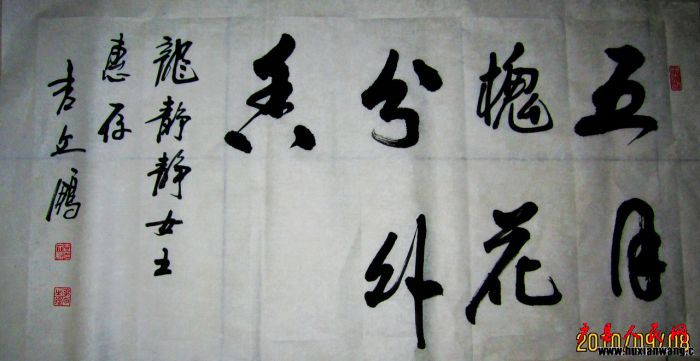 五月
槐花
分外
香
龍静静女士
惠存
鵬
2010/09/08
www.huxianwang.c